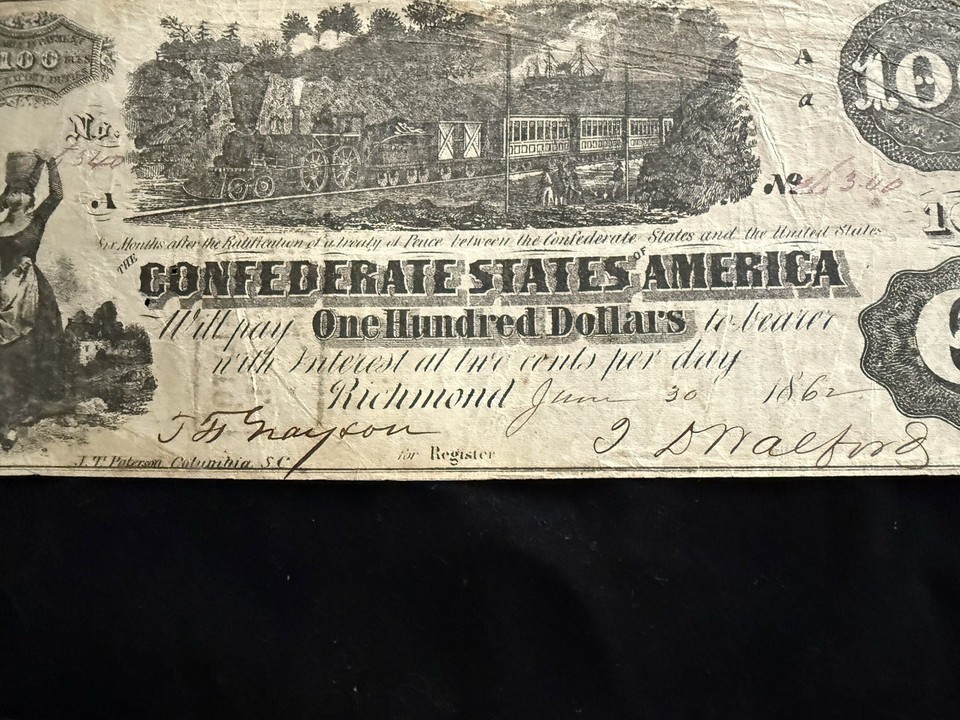 100
100
No.
A
a
A
No
10
Six Months after the Ratification of a treaty of Peace between the Confederate States and the United States
THE CONFEDERATE STATES OF AMERICA
Will pay One Hundred Dollars to bearer
with Interest at two cents per day
Richmond June 30 1862
for Register
J. T. Paterson Columbia, S.C.